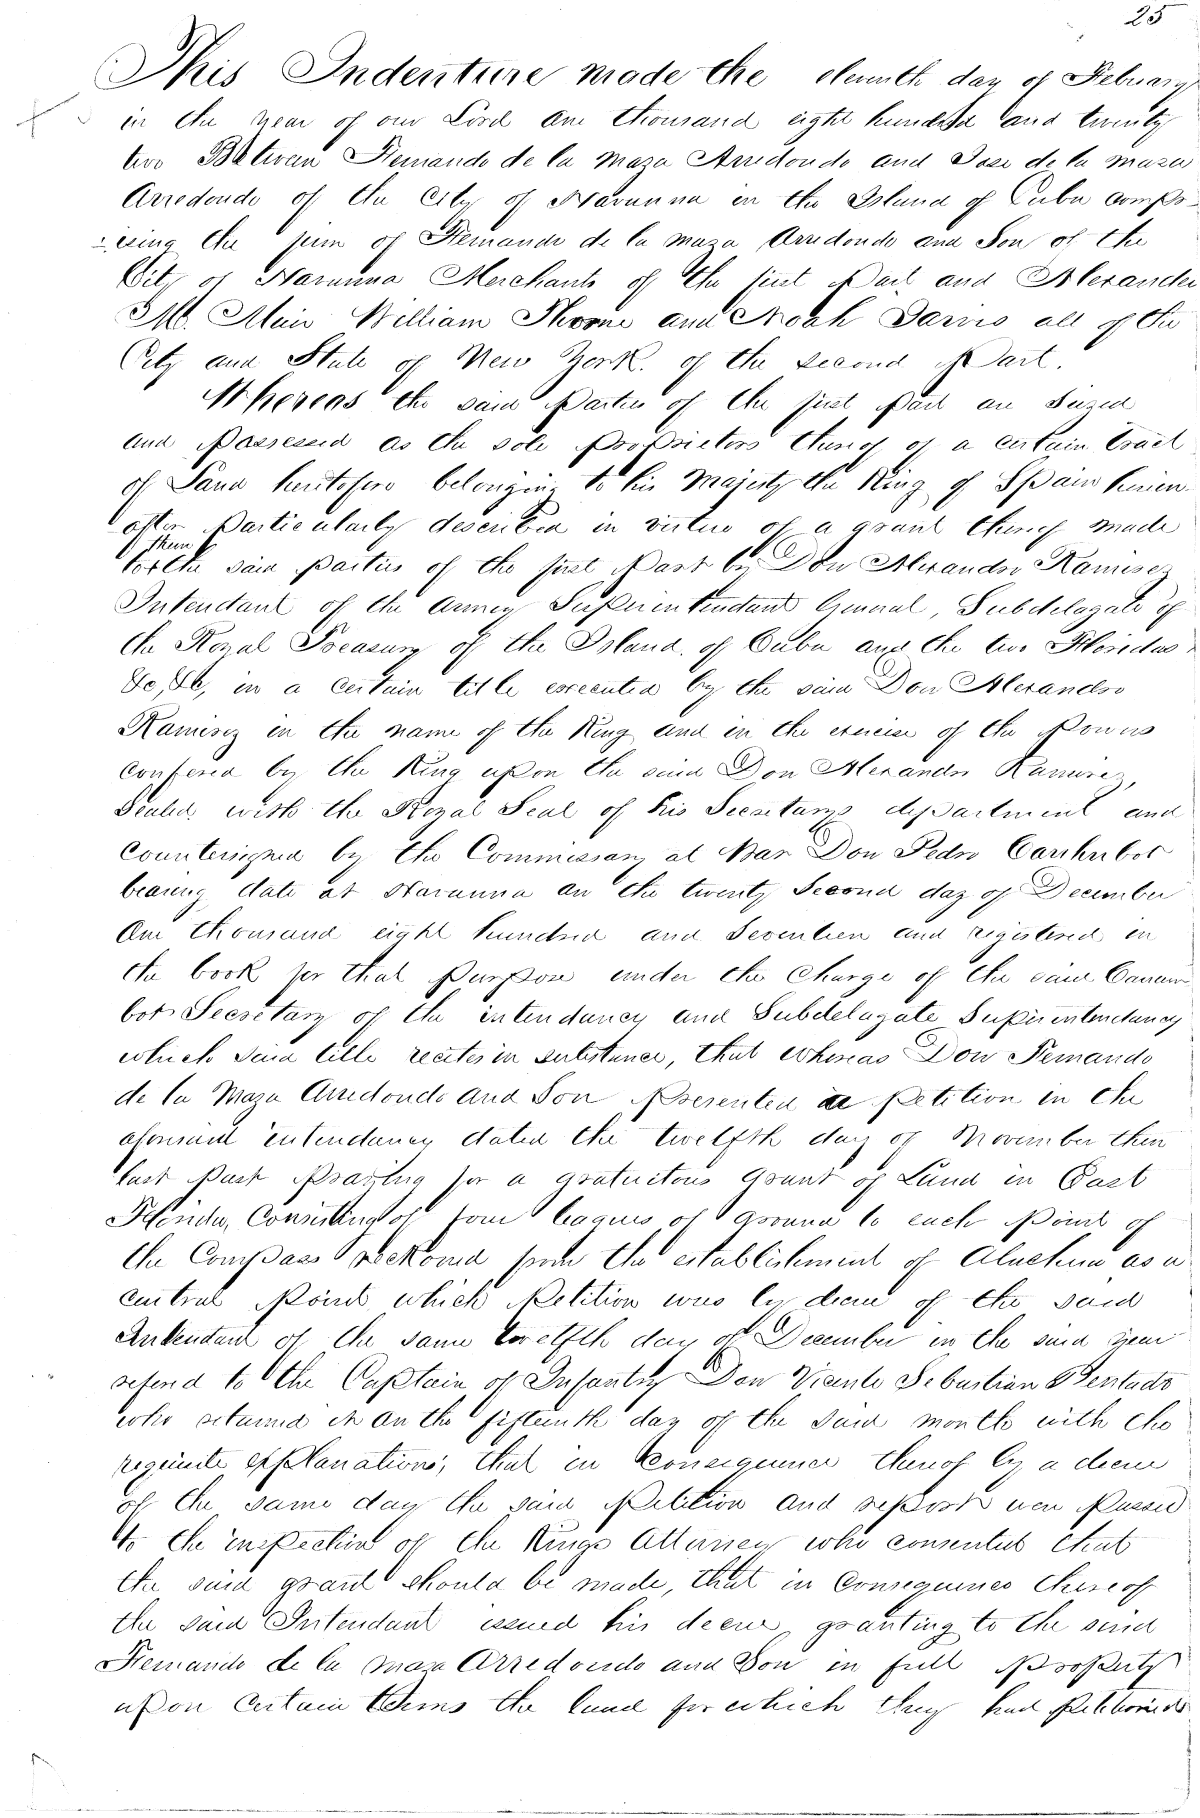 25
This Indenture made the eleventh day of Febuary
in the year of our Lord one thousand eight hundred and twenty
two Between Fernando de la Maza Arredondo and Jose de la maza
Arredondo of the City of Havanna in the Island of Cuba compr-
-ising the firm of Fernando de la maza Arredondo and Son of the
City of Havanna Merchants of the first Part and Alexander
M. Muir William Thorne and Noah Jarvis all of the
City and State of New York. of the second Part.
Whereas the said Parties of the first Part are Seized
and Possessed as the sole Proprietors thereof of a certain tract
of Land heretofore belonging to his Majesty the King of Spain herein-
after Particularly described in virtue of a grant thereof made
them
to the said Parties of the first Part by Don Alexandro Ramirez
Intendant of the Army Superintendant General, Subdelagate of
the Royal Treasury of the Island of Cuba and the two Floridas
&c, &c, in a certain title executed by the said Don Alexandro
Ramirez in the name of the King and in the exercise of the Powers
confered by the King upon the said Don Alexandro Ramirez,
Sealed with the Royal Seal of his Secretarys department and
countersigned by the Commissary at War Don Pedro
bearing date at Havanna on the twenty Second day of December
One thousand eight hundred and Seventeen and registered in
the book for that Purpose under the charge of the said
Secretary of the intendancy and Subdelagate Superintendancy
which said title recites in substance, that whereas Don Fernando
de la Maza Arredondo and Son Presented a Petition in the
aforesaid intendancy dated the twelfth day of November then
last Past Praying for a gratuitous Grant of Land in East
Florida, Consisting of four leagues of Ground to each Point of
the Compass reckoned from the establishment of Alachua as a
central Point which Petition was by decree of the said
Intendant of the same twelfth day of December in the said year
refered to the Captain of Infantry Don Vicente Sebastian Pentado
who returned it on the fifteenth day of the said month with the
requisite explanations; that in consequence thereof by a decree
of the same day the said Petition and report were Passed
to the inspection of the Kings Attorney who consented that
the said grant should be made, that in consequence thereof
the said Intendant issued his decree granting to the said
Fernando de la maza Arredondo and Son in full Property
upon certain terms the land for which they had Petitioned